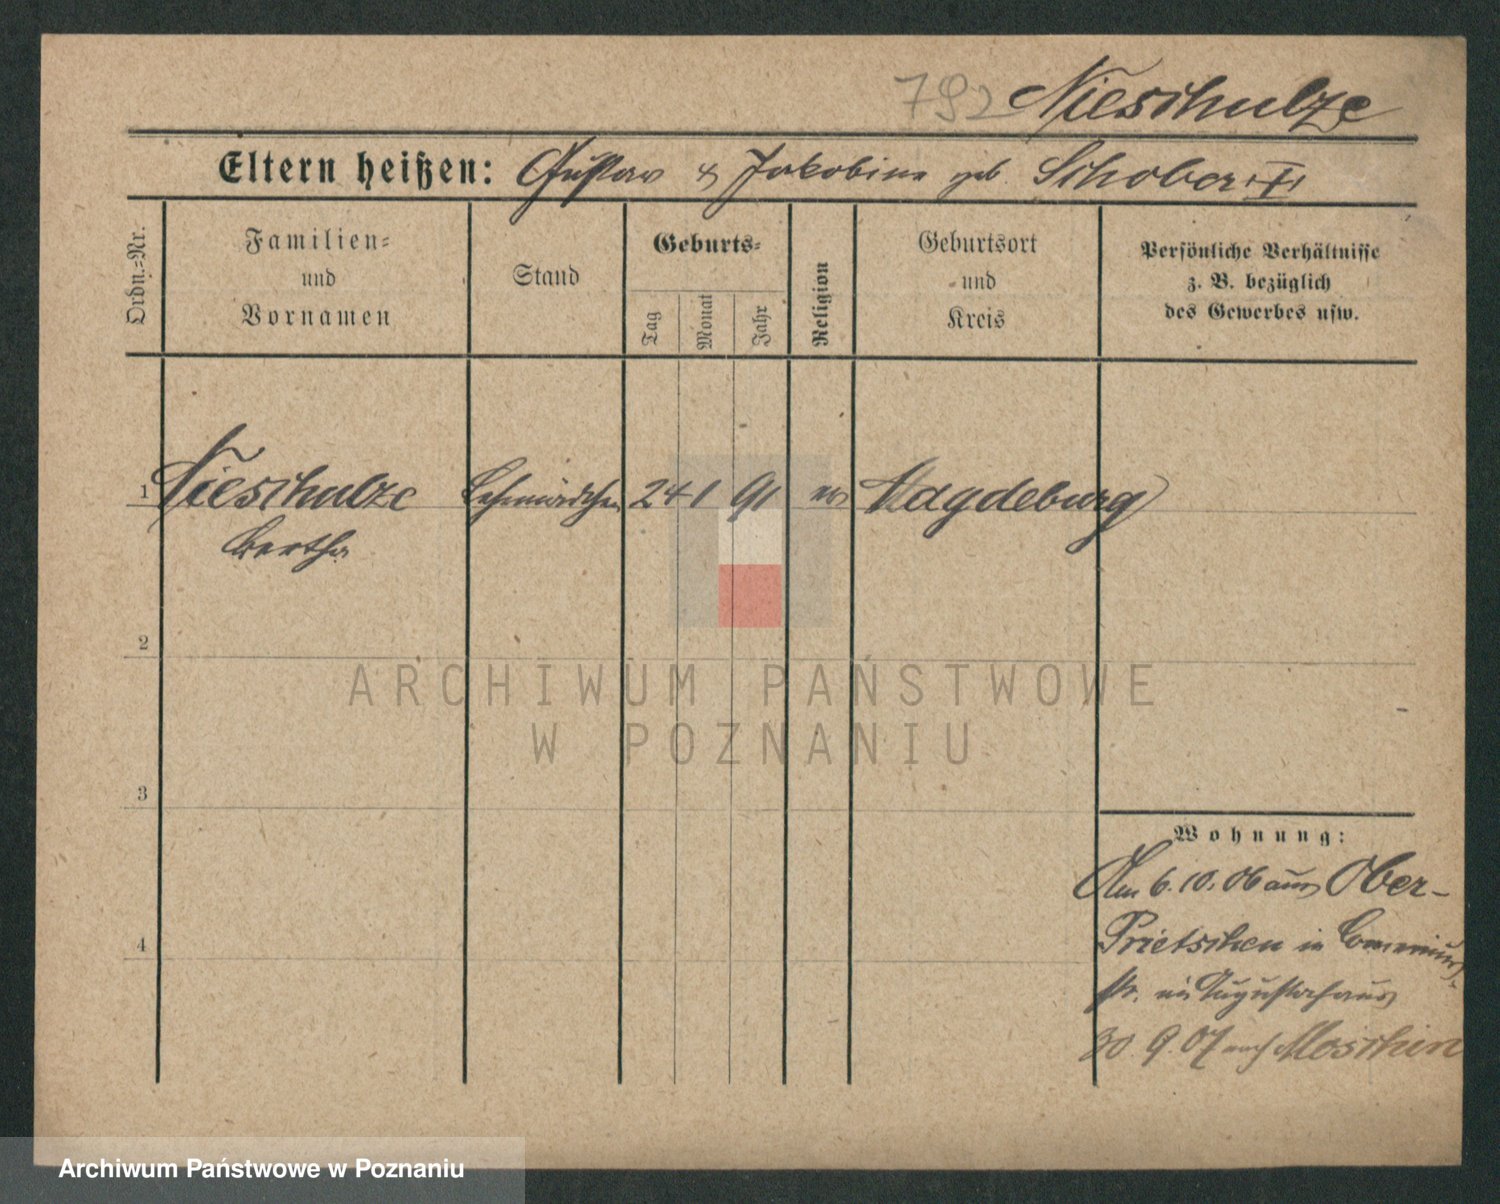 792 Nieschulze
Eltern heißen: Gustav & Jakobine geb. Schober I
Ordn.=Nr.
Familien=
und
Vornamen
Stand
Geburts=
Tag
Monat
Jahr
Religion
Geburtsort
und
Kreis
Persönliche Verhältnisse
z. B. bezüglich
des Gewerbes usw.
1 Nieschulze 24 1 91 ev Magdeburg
Bertha
2
3
4
Wohnung:
Am 6.10.06 aus Ober-
Prietschen in Comenius
str. im Augustahaus
30.9.07 nach Moschin
ARCHIWUM PAŃSTWOWE
W POZNANIU
Archiwum Państwowe w Poznaniu